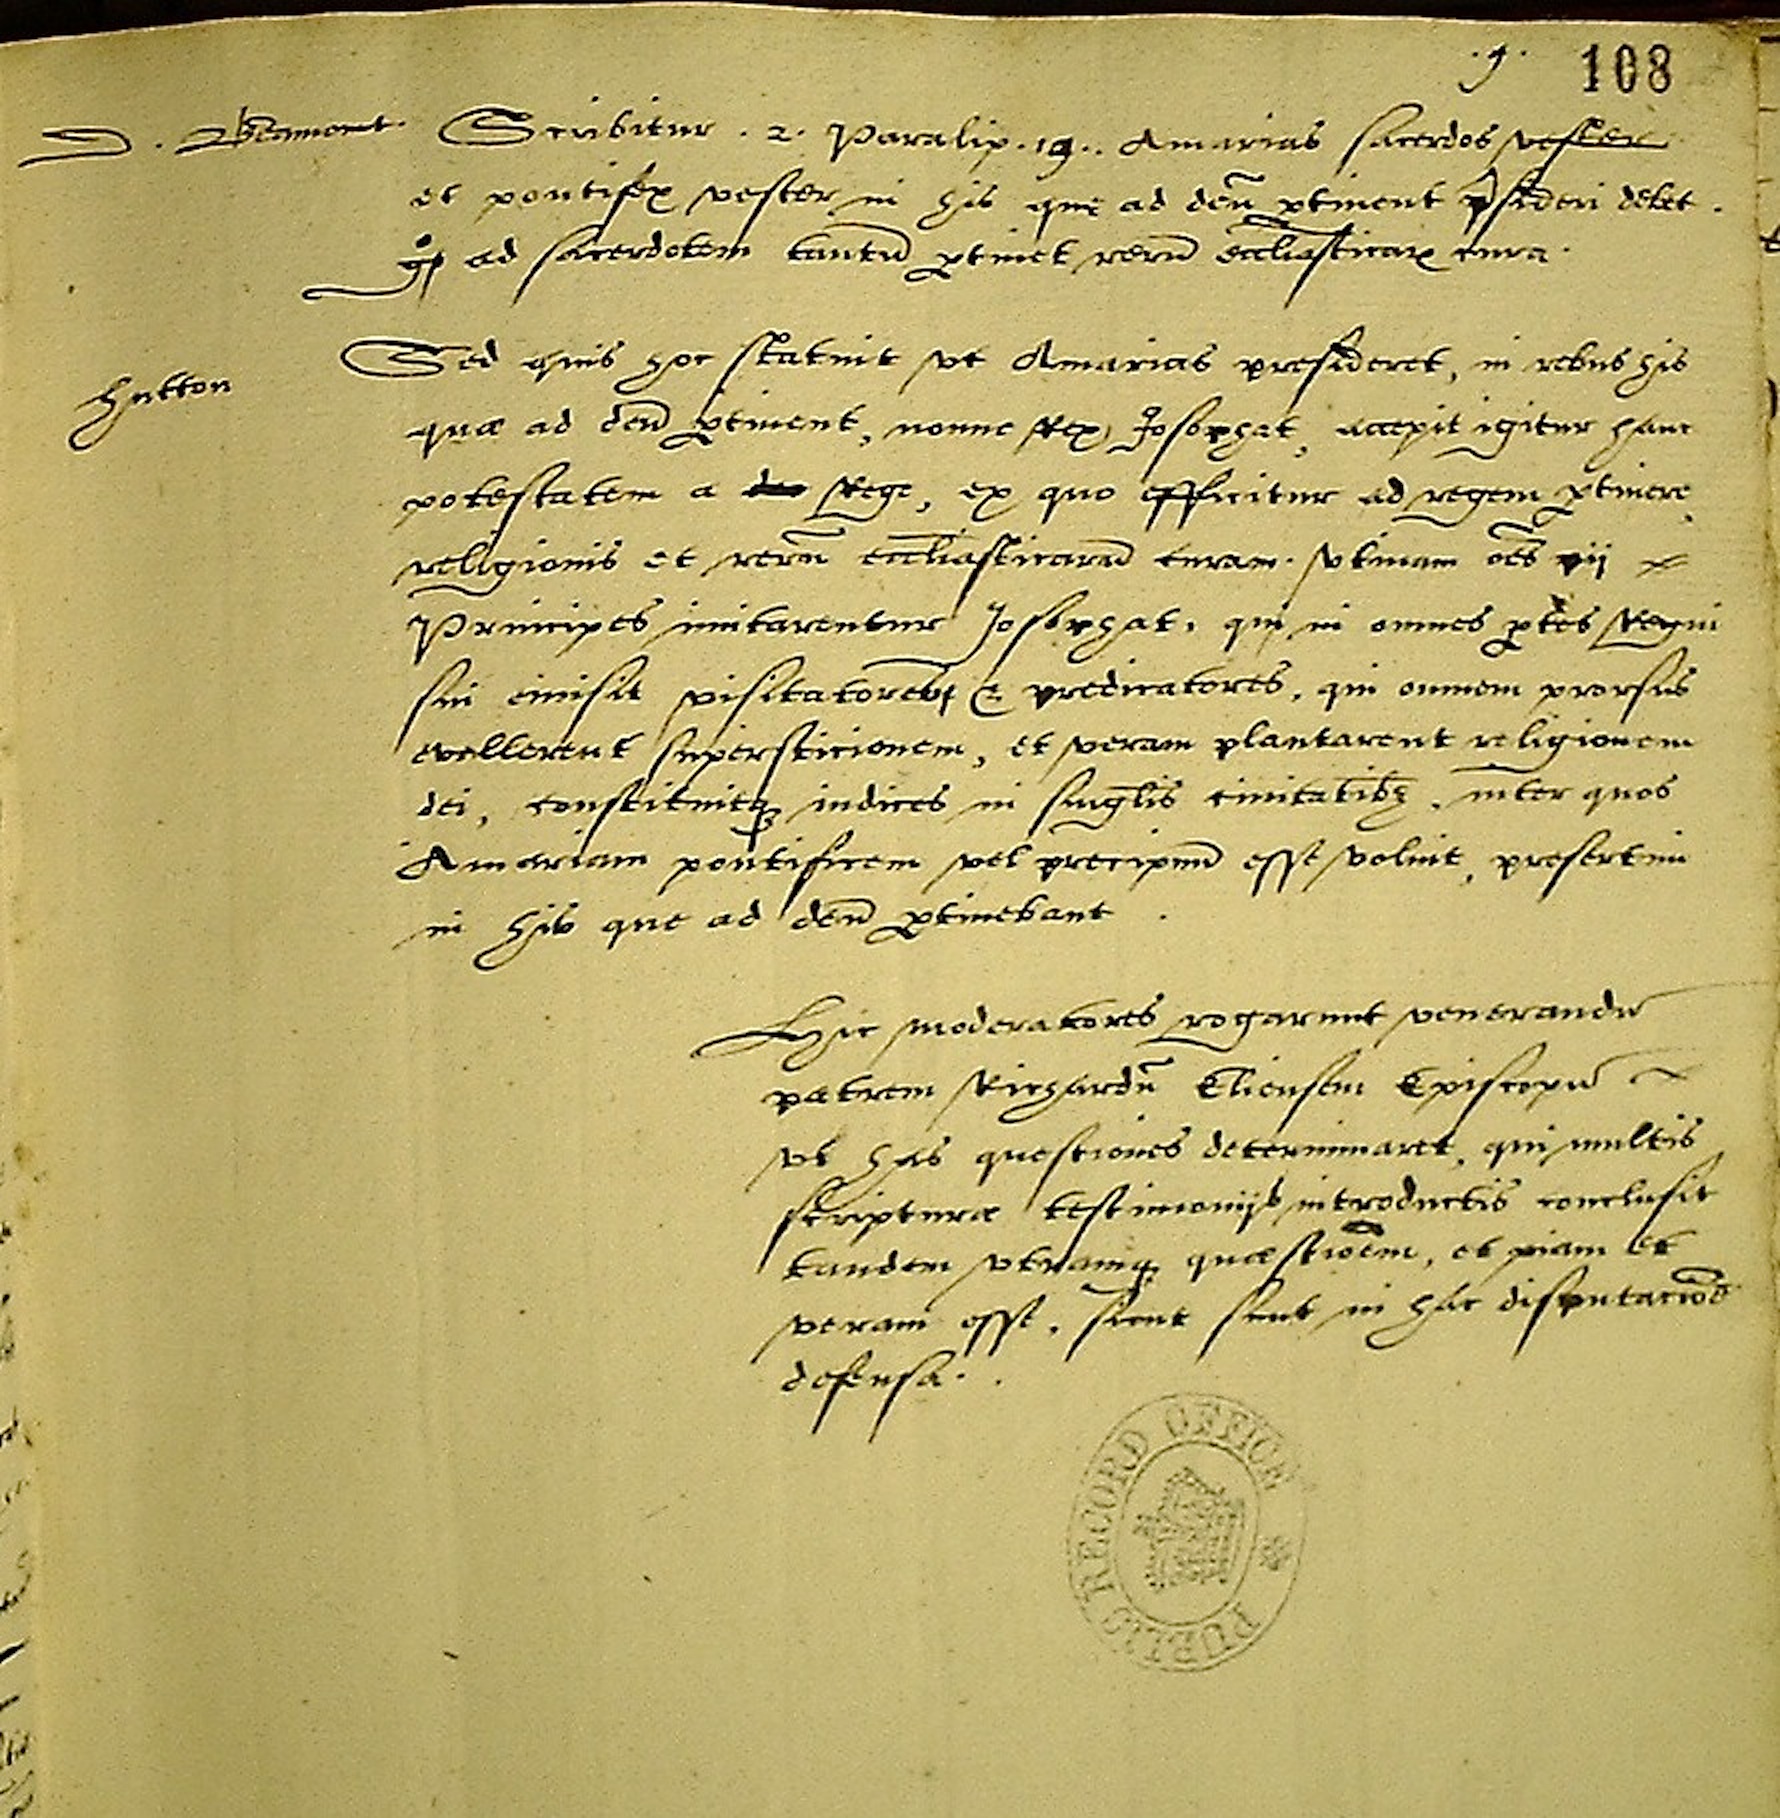 .9. 108
D. Beamont. Scribitur .2. Paralip. 19.. Amarias sacerdos vester
et pontifex vester in his que ad deū ptinent psideri debet.
ad sacerdotem tantū ptinet rerū eccliasticarū cura.
Hutton Sed quis hoc statuit vt Amarias presideret, in rebus his
quæ ad deū ptinent, nonne Rex Josophat, accepit igitur hanc
potestatem a deo Rege, ex quo efficitur ad regem ptinere
religionis et rerū eccliasticarū curam. vtinam oēs pii
Principes imitarentur Josophat, qui in omnes ptes Regni
sui emisit visitatores & predicatores, qui omnem prorsus
evellerent supersticionem, et veram plantarent religionem
dei, constituitq iudices in singlis ciuitatibȝ, inter quos
Amariam pontificem vel precipuū esse voluit, presertim
in his que ad deū ptinebant.
Hic moderatores rogarunt venerandū
patrem Richardū Eliensem Episcopū
vt has questiones determinaret, qui multis
scripturæ testimonijs introductis conclusit
tandem vtramq quæstioēm, et piam et
veram esse, sicut sint in hac disputacioē
defensa..
PUBLIC RECORD OFFICE